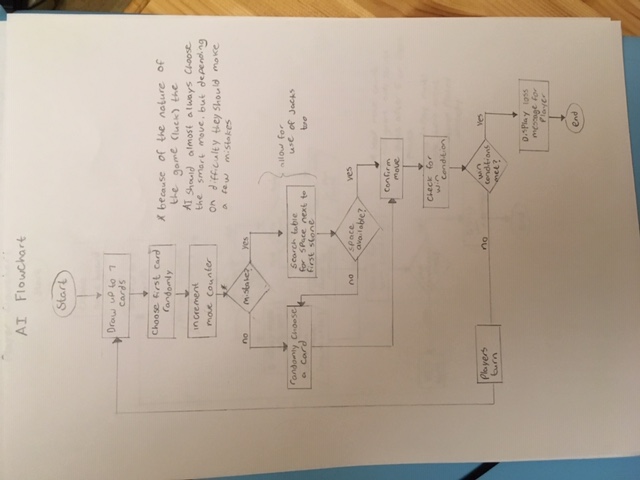 AI Flowchart
Start
Draw up to 7
cards
Choose first card
randomly
increment
move counter
* because of the nature of
the game (luck) the
AI should almost always choose
the smart move, but depending
on difficulty they should make
a few mistakes
*
mistake?
no
yes
randomly choose
a card
Search table
for space next to
first stone
allow for
use of Jacks
too
space
available?
no
yes
confirm
move
check for
win
condition
win
conditions
met?
no
yes
Players
turn
Display loss
message for
Player
end